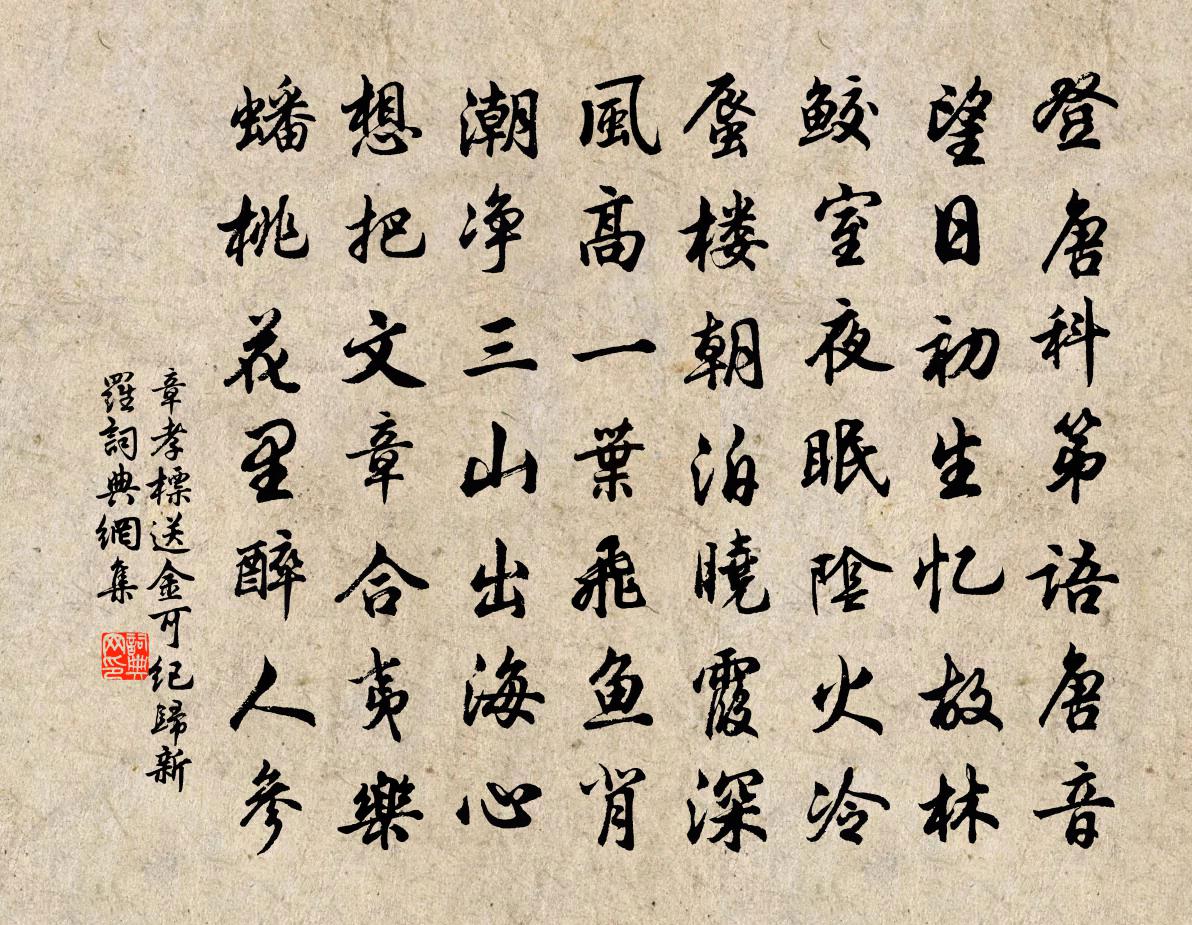 登唐科第語唐音
望日初生忆故林
鮫室夜眠陰火冷
蜃楼朝泊曉霞深
風高一葉飛鱼背
潮净三山出海心
想把文章合夷樂
蟠桃花里醉人參
章孝標送金可纪歸新
羅詞典網集
詞典网印